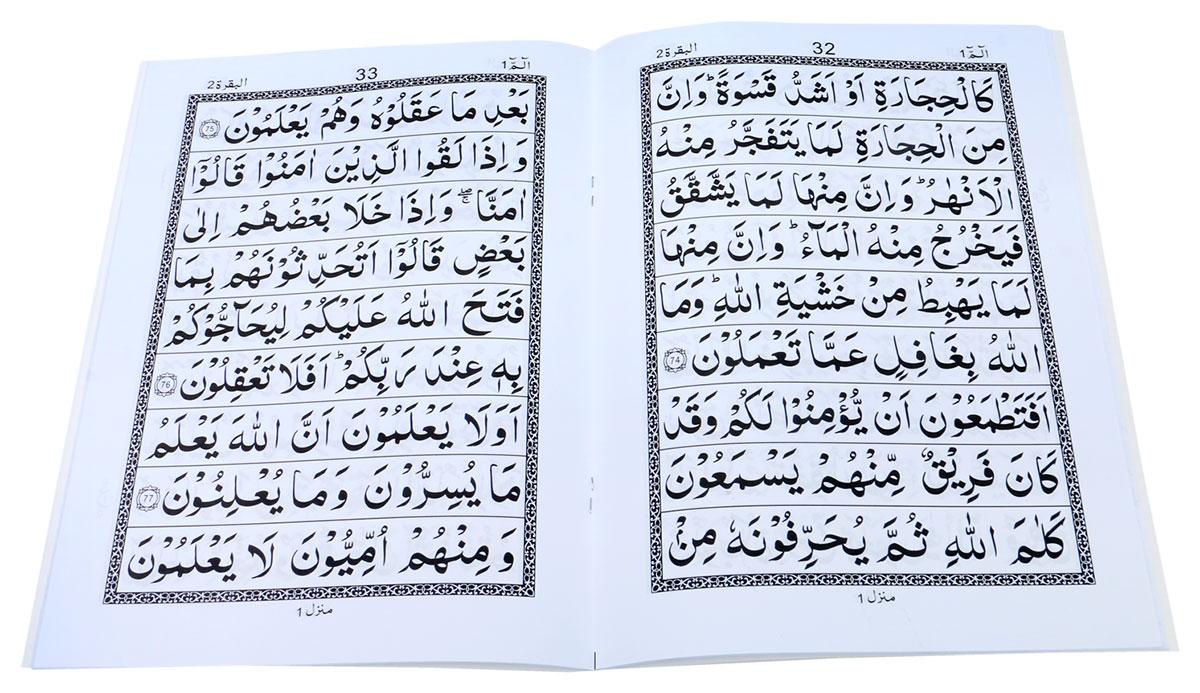 الٓمّٓ 1
32
البقرة 2
كَالْحِجَارَةِ اَوْ اَشَدُّ قَسْوَةً ؕ وَاِنَّ
مِنَ الْحِجَارَةِ لَمَا يَتَفَجَّرُ مِنْهُ
الْاَنْهٰرُ ؕ وَاِنَّ مِنْهَا لَمَا يَشَّقَّقُ
فَيَخْرُجُ مِنْهُ الْمَآءُ ؕ وَاِنَّ مِنْهَا
لَمَا يَهْبِطُ مِنْ خَشْيَةِ اللّٰهِ ؕ وَمَا
اللّٰهُ بِغَافِلٍ عَمَّا تَعْمَلُوْنَ 74
اَفَتَطْمَعُوْنَ اَنْ يُّؤْمِنُوْا لَكُمْ وَقَدْ
كَانَ فَرِيْقٌ مِّنْهُمْ يَسْمَعُوْنَ
كَلٰمَ اللّٰهِ ثُمَّ يُحَرِّفُوْنَهٗ مِنْۢ
منزل 1
الٓمّٓ 1
33
البقرة 2
بَعْدِ مَا عَقَلُوْهُ وَهُمْ يَعْلَمُوْنَ 75
وَاِذَا لَقُوا الَّذِيْنَ اٰمَنُوْا قَالُوْٓا
اٰمَنَّا ۖۚ وَاِذَا خَلَا بَعْضُهُمْ اِلٰى
بَعْضٍ قَالُوْٓا اَتُحَدِّثُوْنَهُمْ بِمَا
فَتَحَ اللّٰهُ عَلَيْكُمْ لِيُحَآجُّوْكُمْ
بِهٖ عِنْدَ رَبِّكُمْ ؕ اَفَلَا تَعْقِلُوْنَ 76
اَوَلَا يَعْلَمُوْنَ اَنَّ اللّٰهَ يَعْلَمُ
مَا يُسِرُّوْنَ وَمَا يُعْلِنُوْنَ 77
وَمِنْهُمْ اُمِّيُّوْنَ لَا يَعْلَمُوْنَ
منزل 1